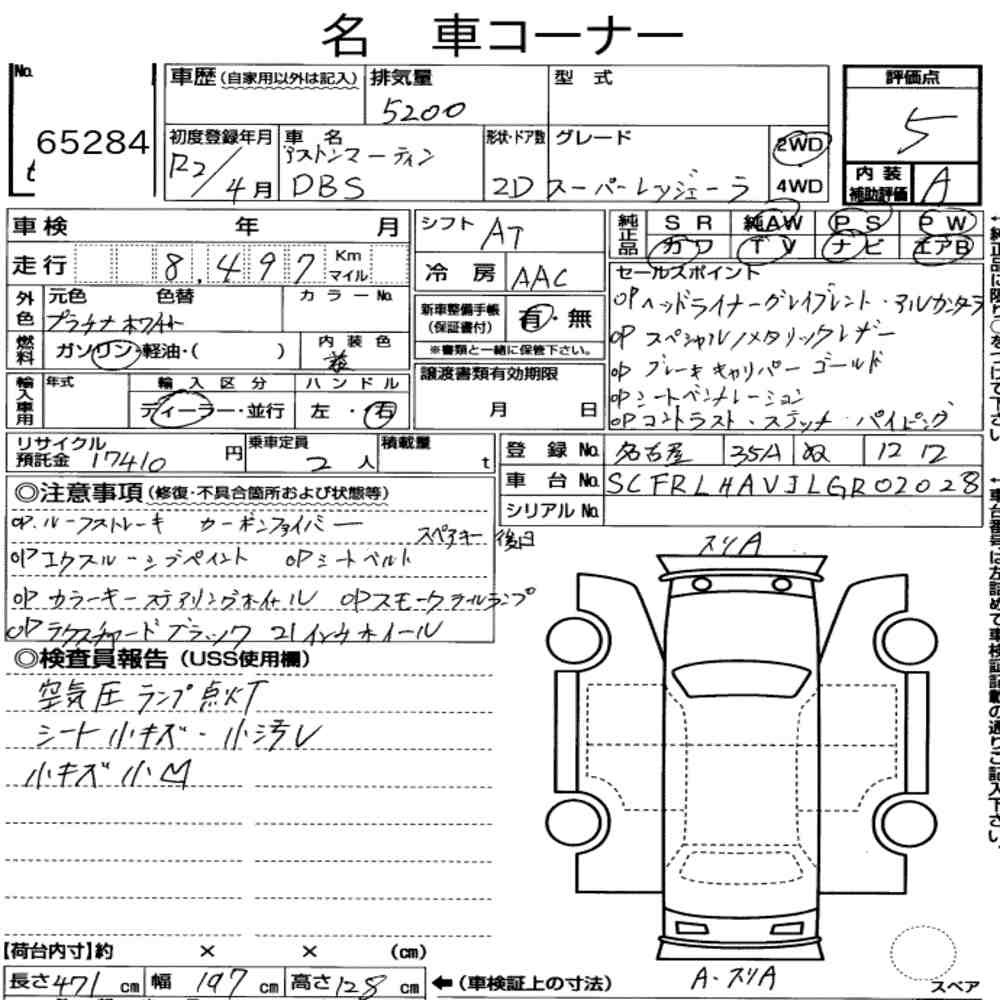 名 車コーナー
No.
65284
車歴 (自家用以外は記入) 排気量 型 式
5200
初度登録年月 車 名 形状・ドア数 グレード
R2/4月 アストンマーティン DBS 2D スーパーレッジェーラ
2WD
4WD
評価点
5
内装補助評価 A
車検 年 月
走行 8,497 Km マイル
シフト AT
冷房 AAC
純正品 SR 純AW PS PW
カワ TV ナビ エアB
外色 元色 色替 カラーNo.
プラチナホワイト
燃料 ガソリン・軽油・( ) 内装色
新車整備手帳 (保証書付) 有・無
※書類と一緒に保管下さい。
輸入車用 年式 輸入区分 ハンドル
ディーラー・並行 左・右
譲渡書類有効期限
月 日
セールスポイント
OPヘッドライナーグレイブレント・アルカンタラ
OP スペシャル/メタリックレザー
OP ブレーキキャリパー ゴールド
OPシートベンチレーション
OPコントラスト・ステッチ・パイピング
リサイクル預託金 17410 円 乗車定員 2人 積載量 t
登録No. 名古屋 35A ぬ 12 12
車台No. SCFRLHAVJLGR02028
シリアルNo.
◎注意事項 (修復・不具合箇所および状態等)
OP.ルーフストレーキ カーボンファイバー
スペアキー後日
OPエクスルーシブペイント OPシートベルト
OPカラーキーステアリングホイール OPスモークテールランプ
OPテクスチャードブラック 21インチホイール
◎検査員報告 (USS使用欄)
空気圧ランプ点灯
シート小キズ・小汚レ
小キズ小凹
スリA
A・スリA
スペア
【荷台内寸】約 × × (cm)
長さ 471 cm 幅 197 cm 高さ 128 cm ←(車検証上の寸法)